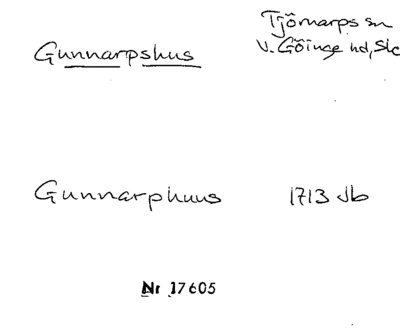 Tjörnarps sn
Gunnarpshus
V. Göinge hd, Sk
Gunnarphuus 1713 Jb
Nr 17605